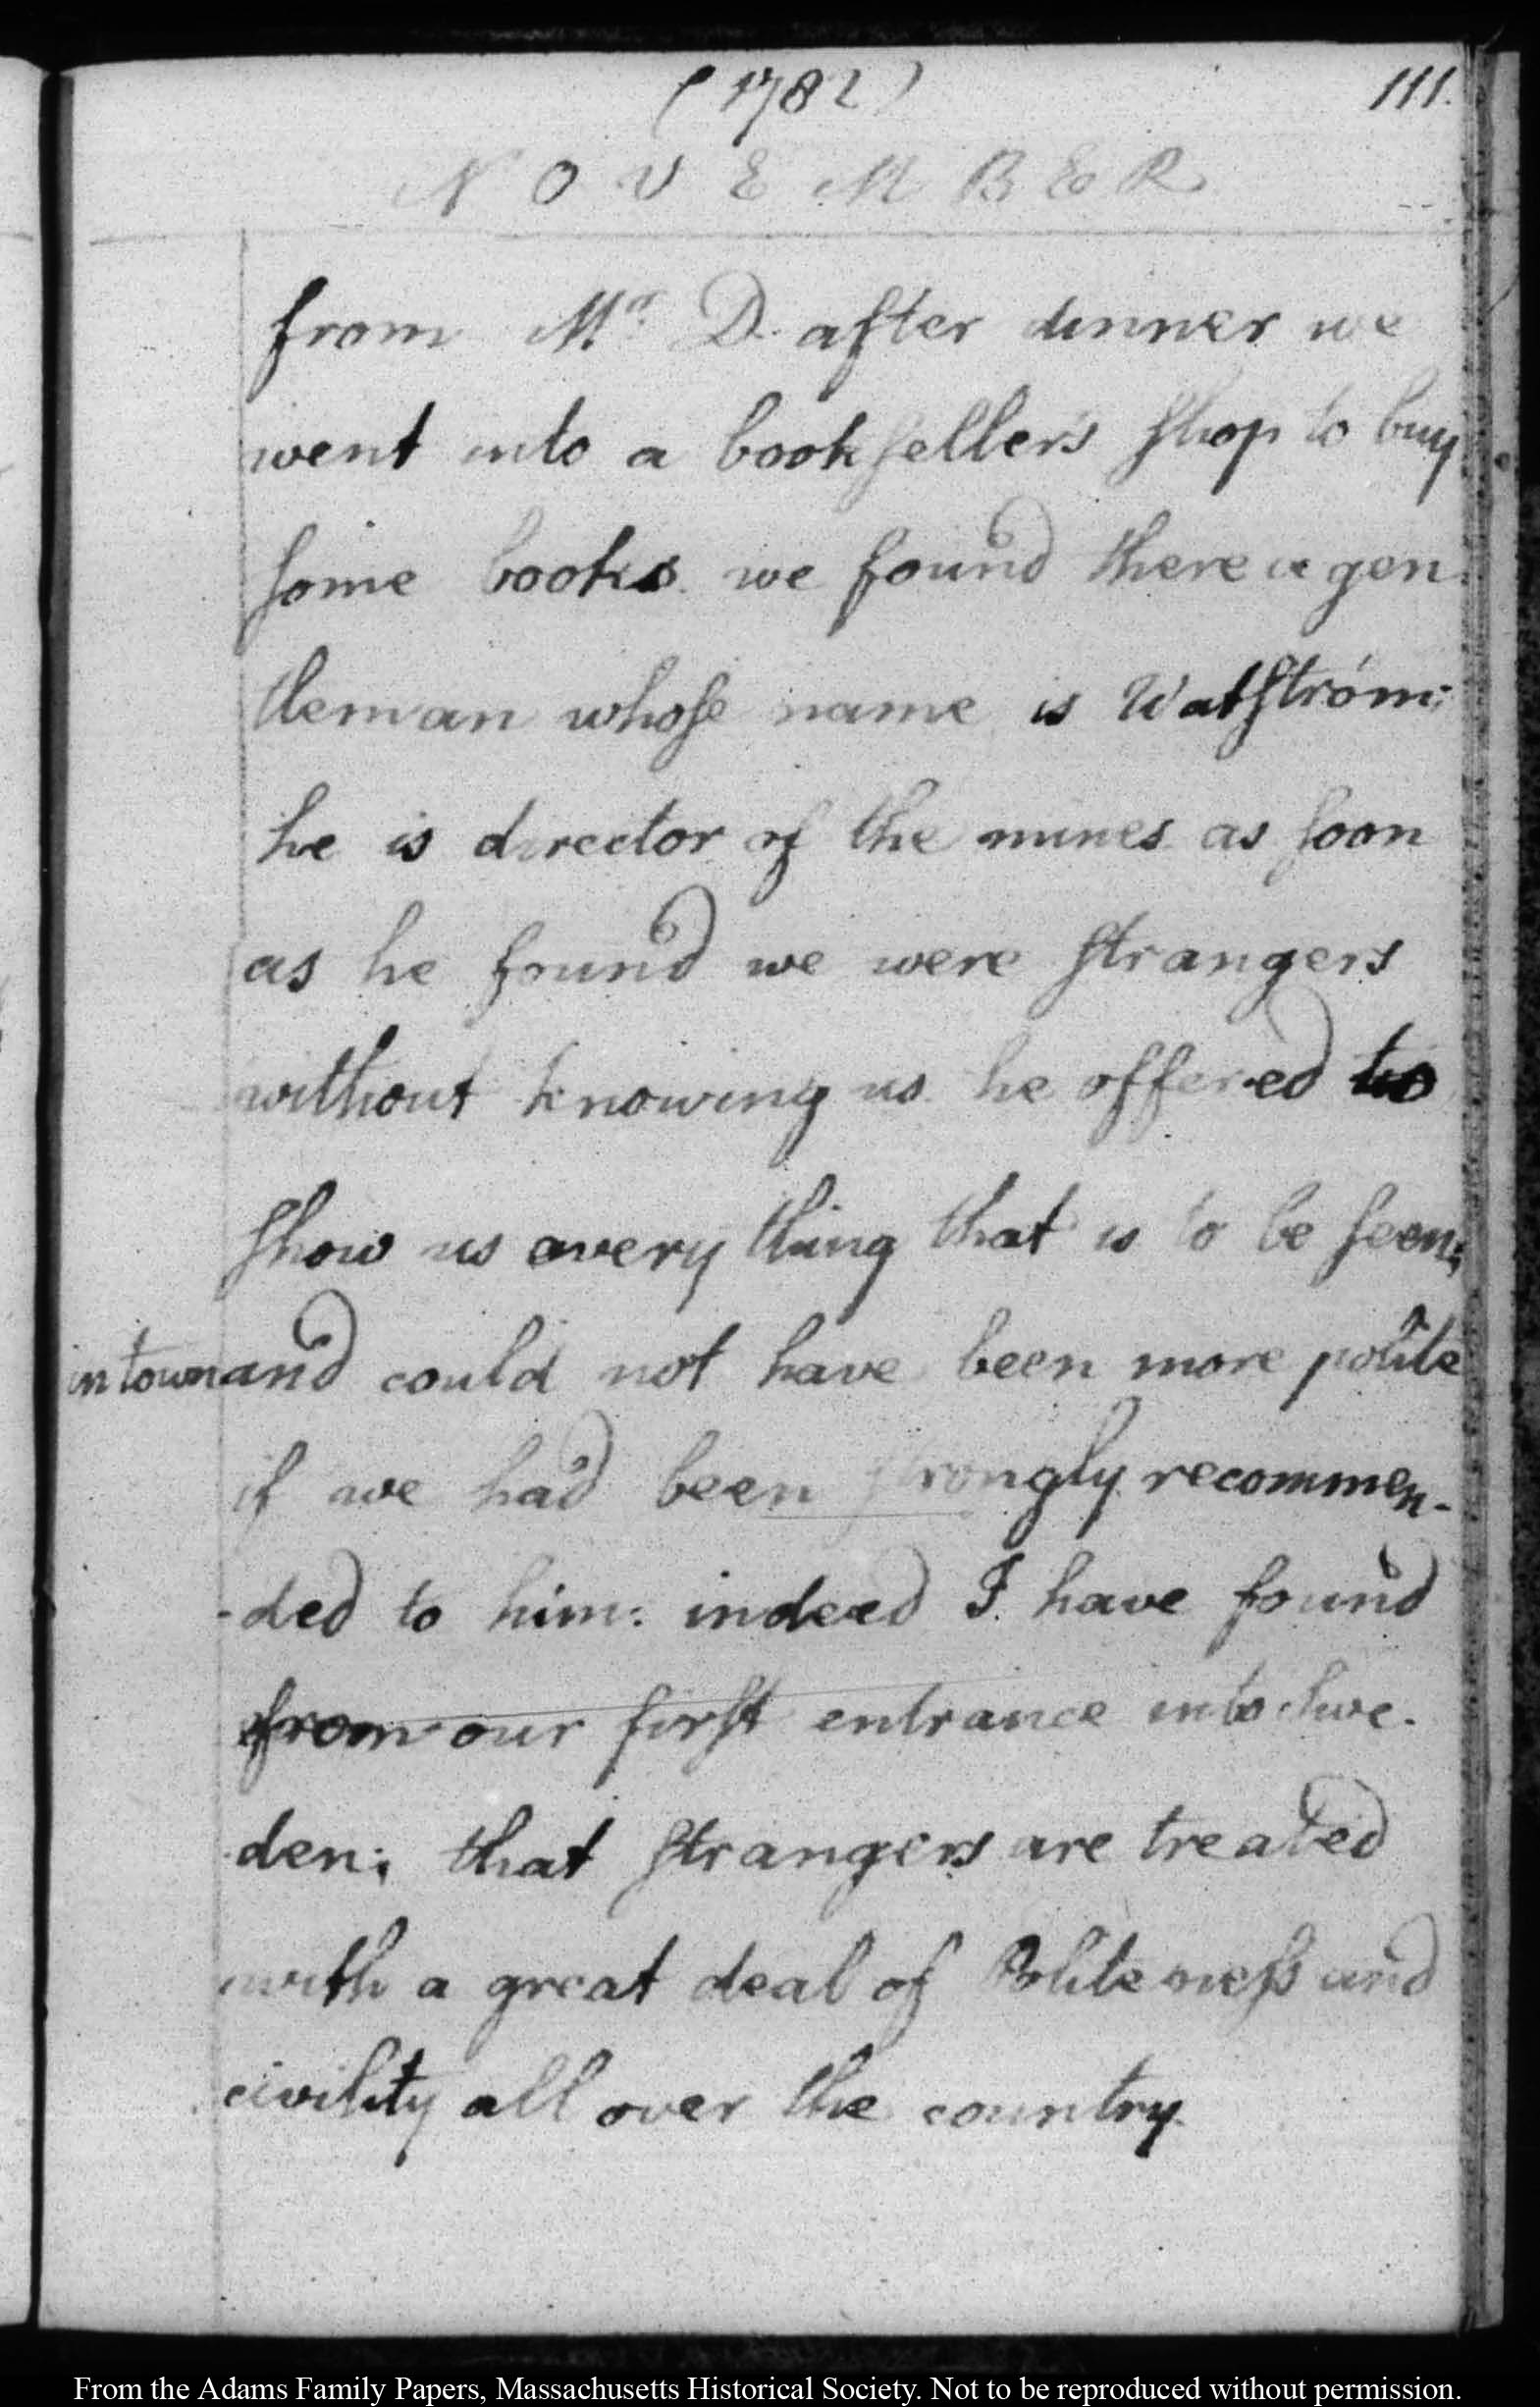 (1782)
111.
NOVEMBER
from Mr. D. after dinner we
went into a bookſellers ſhop to buy
ſome books. we found there a gen
tleman whoſe name is Watſtröm;
he is director of the mines. as ſoon
as he found we were ſtrangers
without knowing us he offered to
ſhow us every thing that is to be ſeen;
in town and could not have been more polite
if we had been ſtrongly recommen-
-ded to him: indeed I have found
from our firſt entrance into Swe-
den; that ſtrangers are treated
with a great deal of Politeneſs and
civility all over the country.
From the Adams Family Papers, Massachusetts Historical Society. Not to be reproduced without permission.